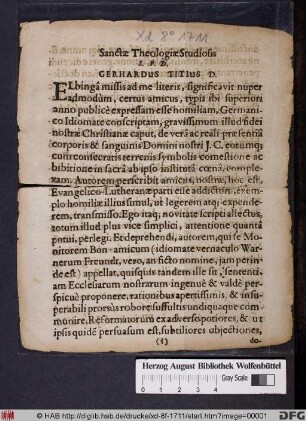 Xd 8° 1711
Sanctæ Theologiæ Studiosis
S. P. D.
GERHARDUS TITIUS D.
ELbingâ missis ad me literis, significavit nuper
admodùm, certus amicus, typis ibi superiori
anno publicè expressam esse homiliam, Germani-
co Idiomate conscriptam, gravissimum illud fidei
nostræ Christianæ caput, de verâ ac reali præsentiâ
corporis & sanguinis Domini nostri J. C. eorumq;
cum consecratis terrenis symbolis comestione ac
bibitione in sacrâ ab ipso institutâ cœnâ, comple-
xam. Autorem perscribit amicus, nostræ, hoc est,
Evangelico-Lutheranæ parti esse addictum, exem-
plo homiliæ illius simul, ut legerem atq; expende-
rem, transmisso. Ego itaq; novitate scripti allectus,
totum illud plus vice simplici, attentione quantâ
potui, perlegi. Et deprehendi, autorem, qui se Mo-
nitorem Bon-amicum (idiomate vernaculo War-
nerum Freundt, vero, an ficto nomine, jam perin-
de est) appellat, quisquis tandem ille sit, sententi-
am Ecclesiarum nostrarum ingenuè & valdè per-
spicuè proponere, rationibus apertissimis, & insu-
perabili prorsus robore suffultis undiquaque com-
munire, Reformatorum ex adverso poriores, & ut
ipsis quidē persuasum est, subtiliores objectiones,
do-
Herzog August Bibliothek Wolfenbüttel
Gray Scale
© HAB http://diglib.hab.de/drucke/xd-8f-1711/start.htm?image=00001
DFG